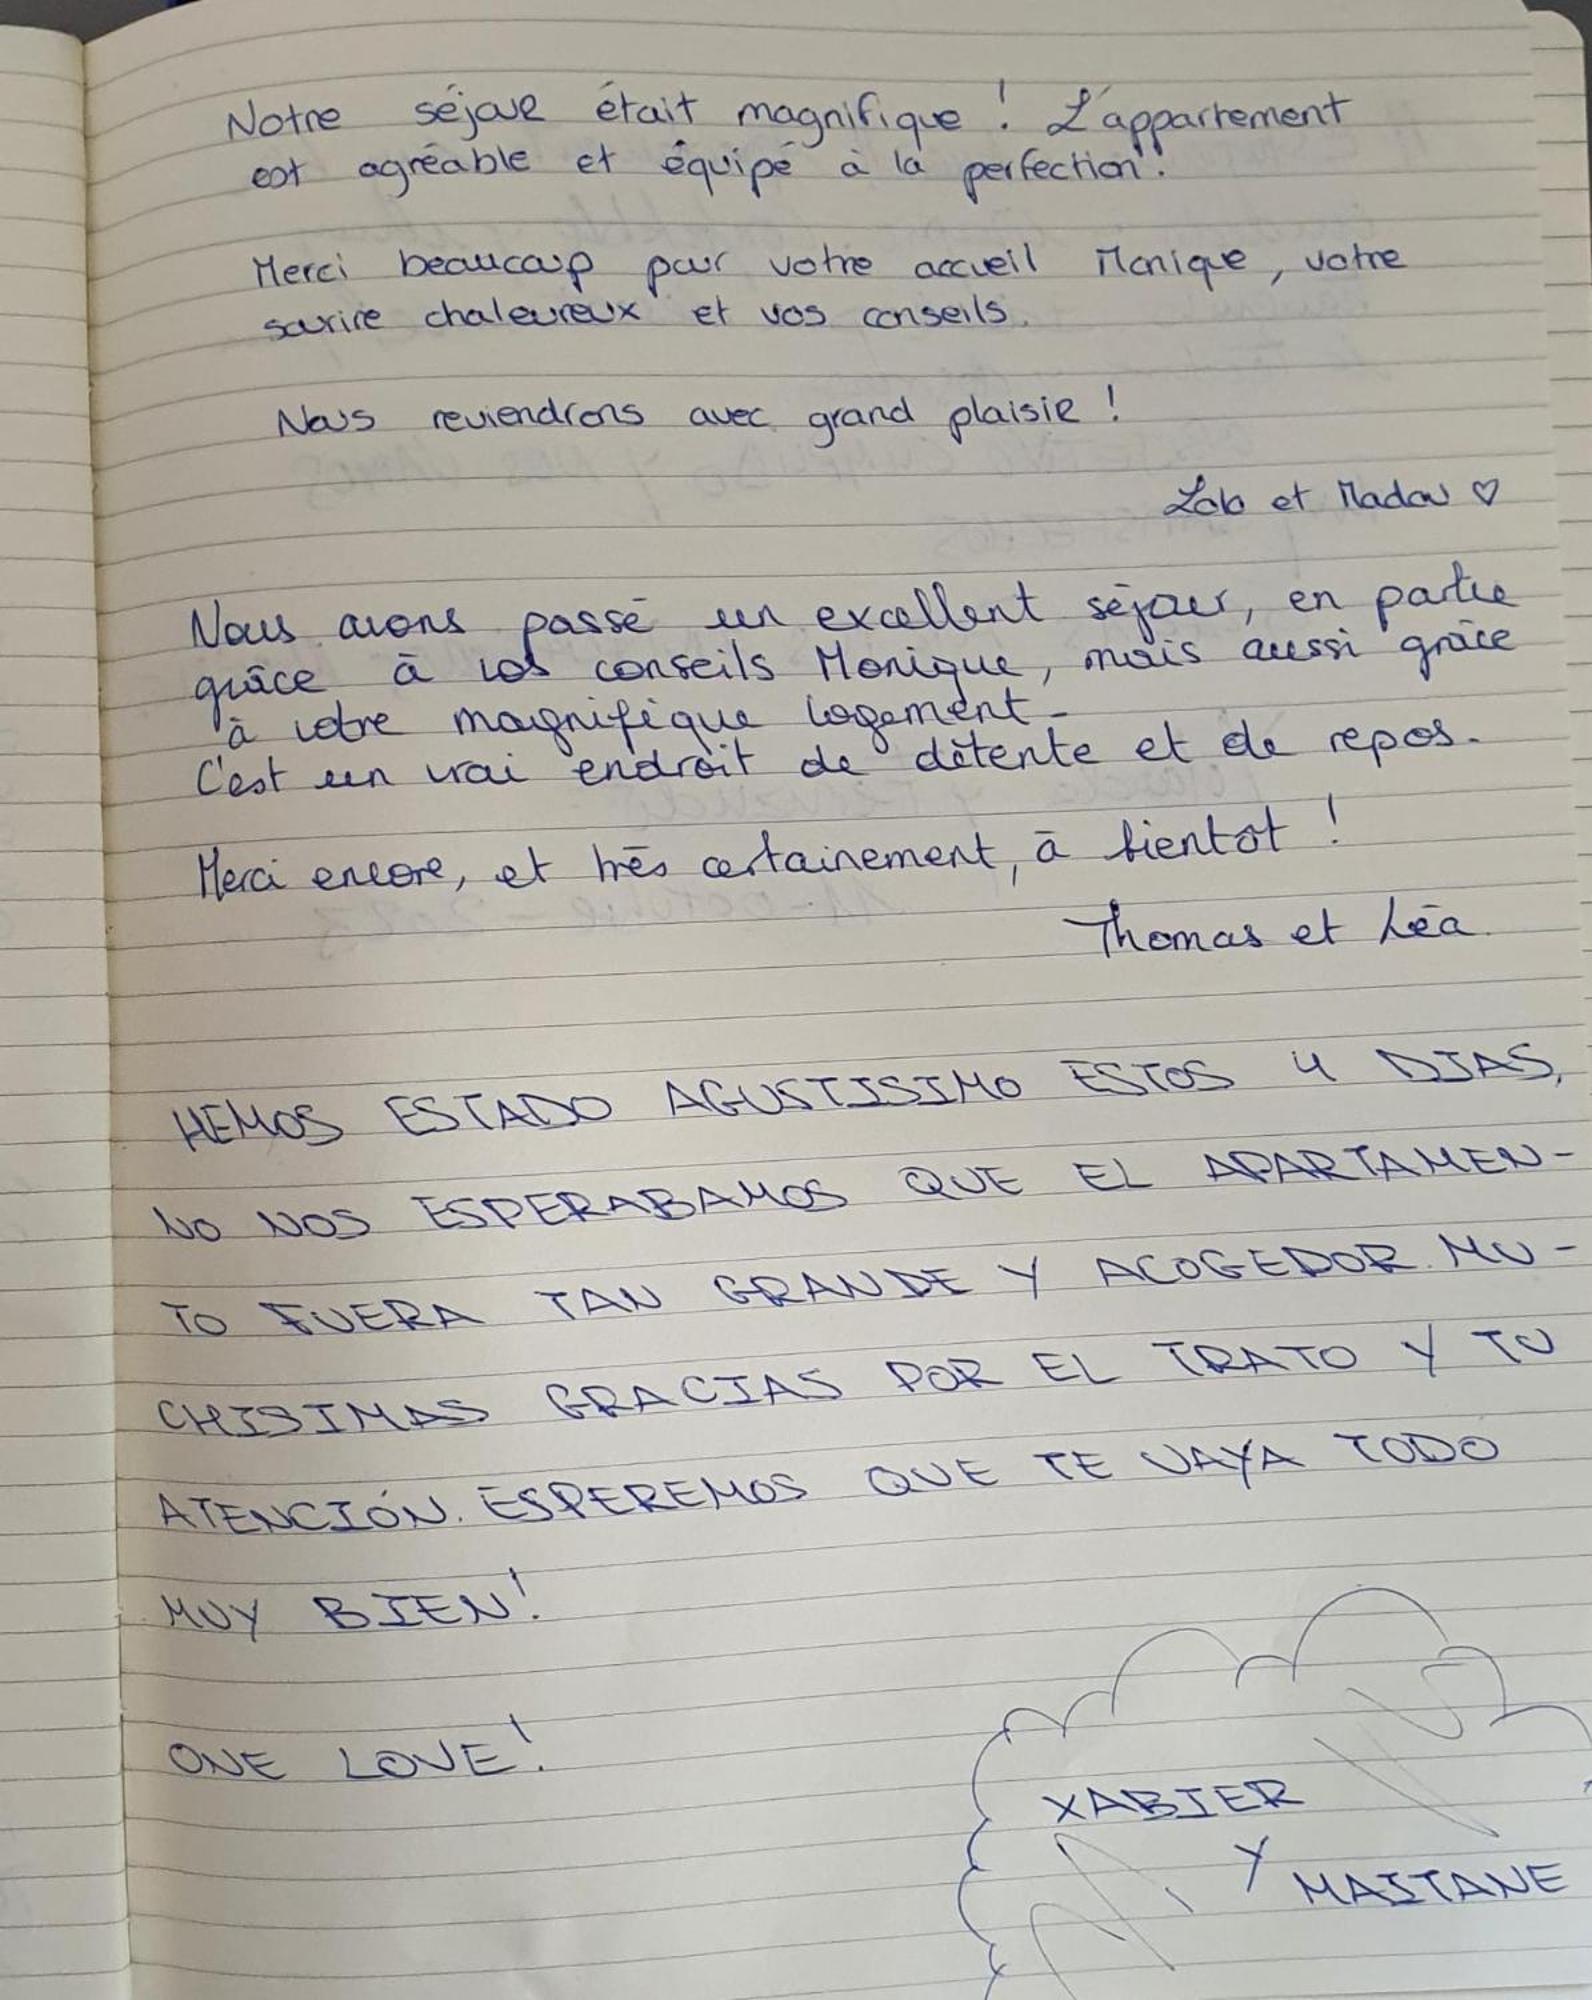 Notre séjour était magnifique ! L'appartement
est agréable et équipé à la perfection !
Merci beaucoup pour votre accueil Monique, votre
sourire chaleureux et vos conseils.
Nous reviendrons avec grand plaisir !
et Madou ♡
Nous avons passé un excellent séjour, en partie
grâce à vos conseils Monique, mais aussi grâce
à votre magnifique logement.
C'est un vrai endroit de détente et de repos.
Merci encore, et très certainement, à bientot !
Thomas et Léa
HEMOS ESTADO AGUSTISIMO ESTOS 4 DIAS,
NO NOS ESPERABAMOS QUE EL APARTAMEN-
TO FUERA TAN GRANDE Y ACOGEDOR. MU-
CHISIMAS GRACIAS POR EL TRATO Y TU
ATENCIÓN. ESPEREMOS QUE TE VAYA TODO
MUY BIEN!
ONE LOVE!
XABIER
Y MAITANE